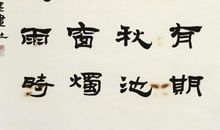 有期
秋池
窗燭
雨時